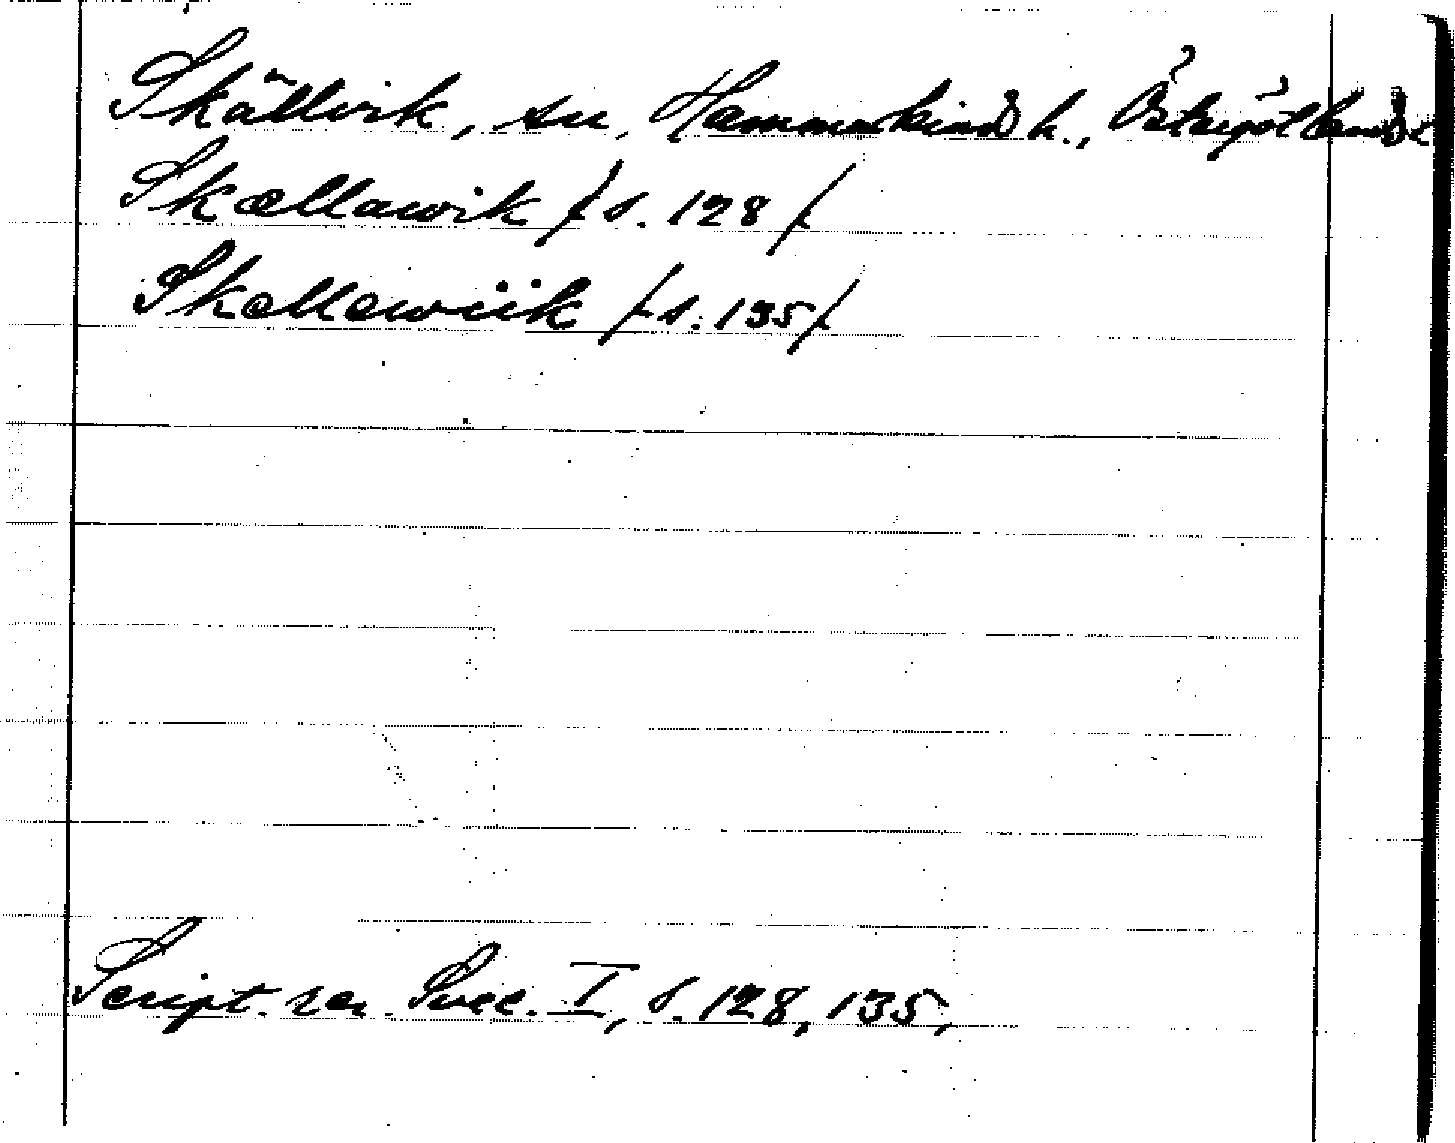 Skällvik, sn, Hammarkinds h., Östergötlands l
Skællawik /s. 128/
Skællewiik /s. 135/
Script. rer. Svec. I, s. 128, 135,